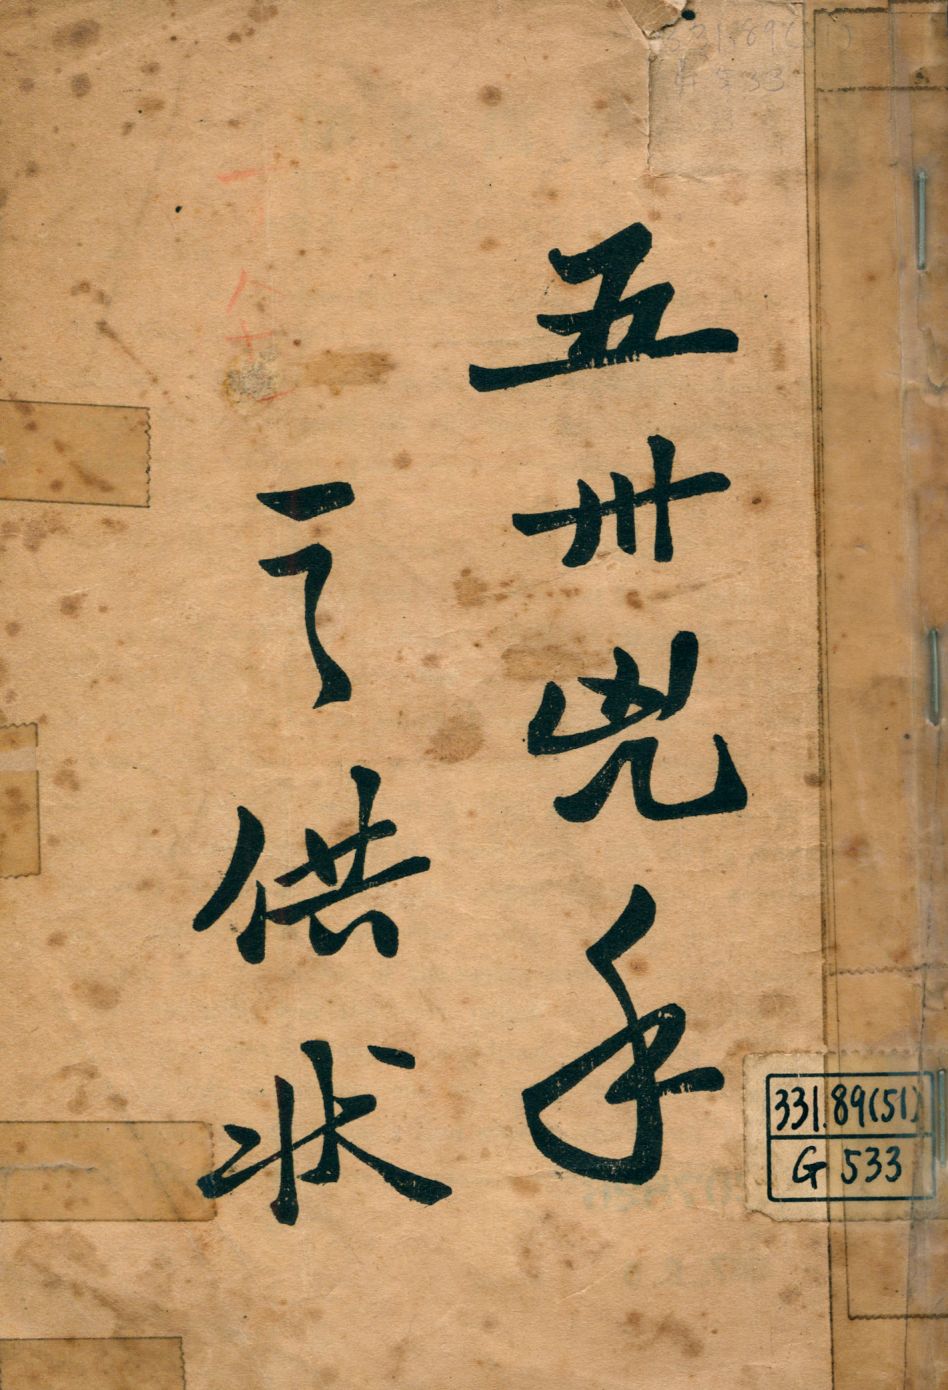 五卅兇手
之供状
331.89(51)
G 533